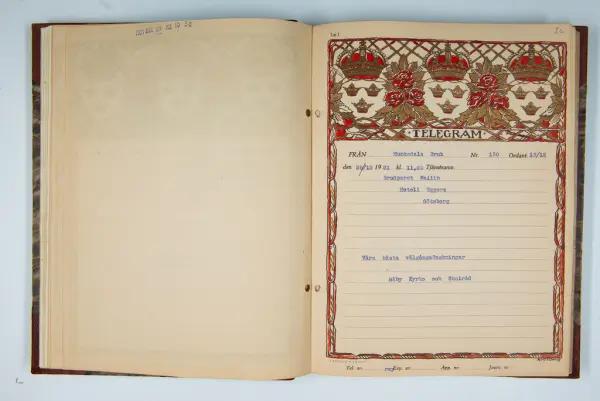 TELEGRAM
FRÅN Munkedals Bruk Nr. 130 Ordant 13/12
den 20/12 1921 kl. 11,50 Tjänsteanm.
Brudparet Wallin
Hotell Eggers
Göteborg
Våra bästa välgångsönskningar
Håby Kyrko och Skolråd
Tel. nr. Exp. nr Ann. nr Journ. nr